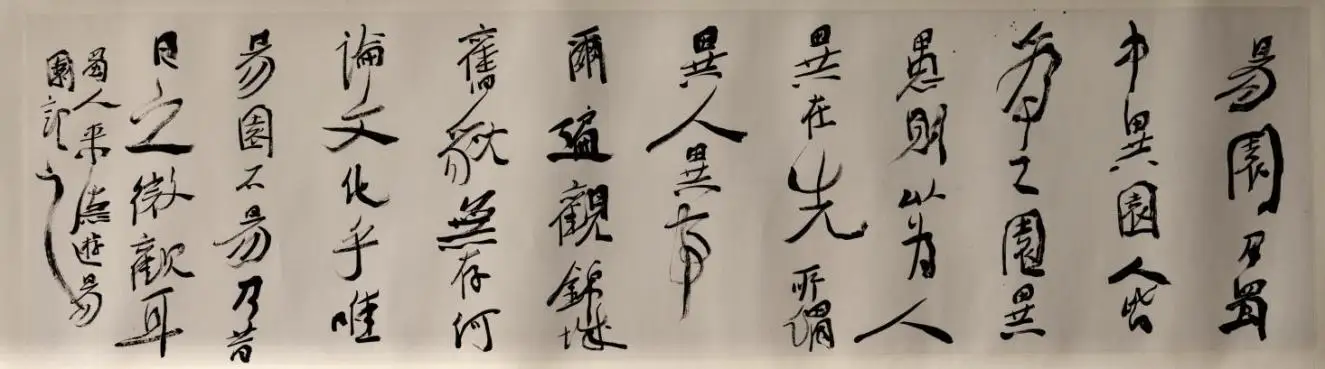 易園乃蜀
中異園人皆
之園異
愚則以為人
異在先所謂
異人異事
爾遍觀錦城
舊貌無存何
論文化乎唯
易園不易乃昔
日之微觀耳
蜀人來德遊易
園記